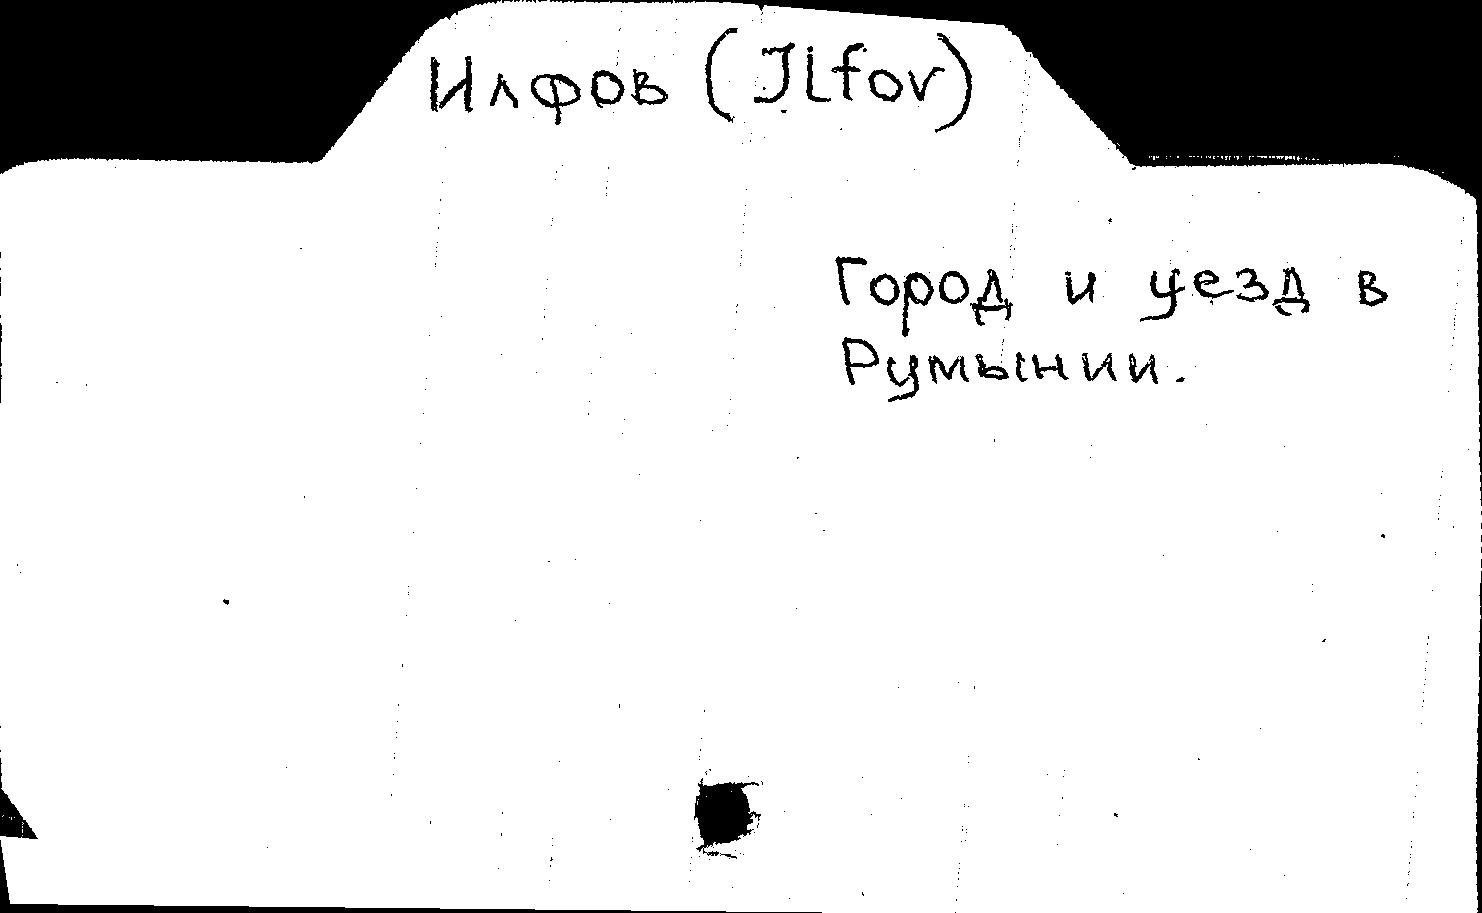 Илфов (Ilfov)
Город и уезд в
Румынии.